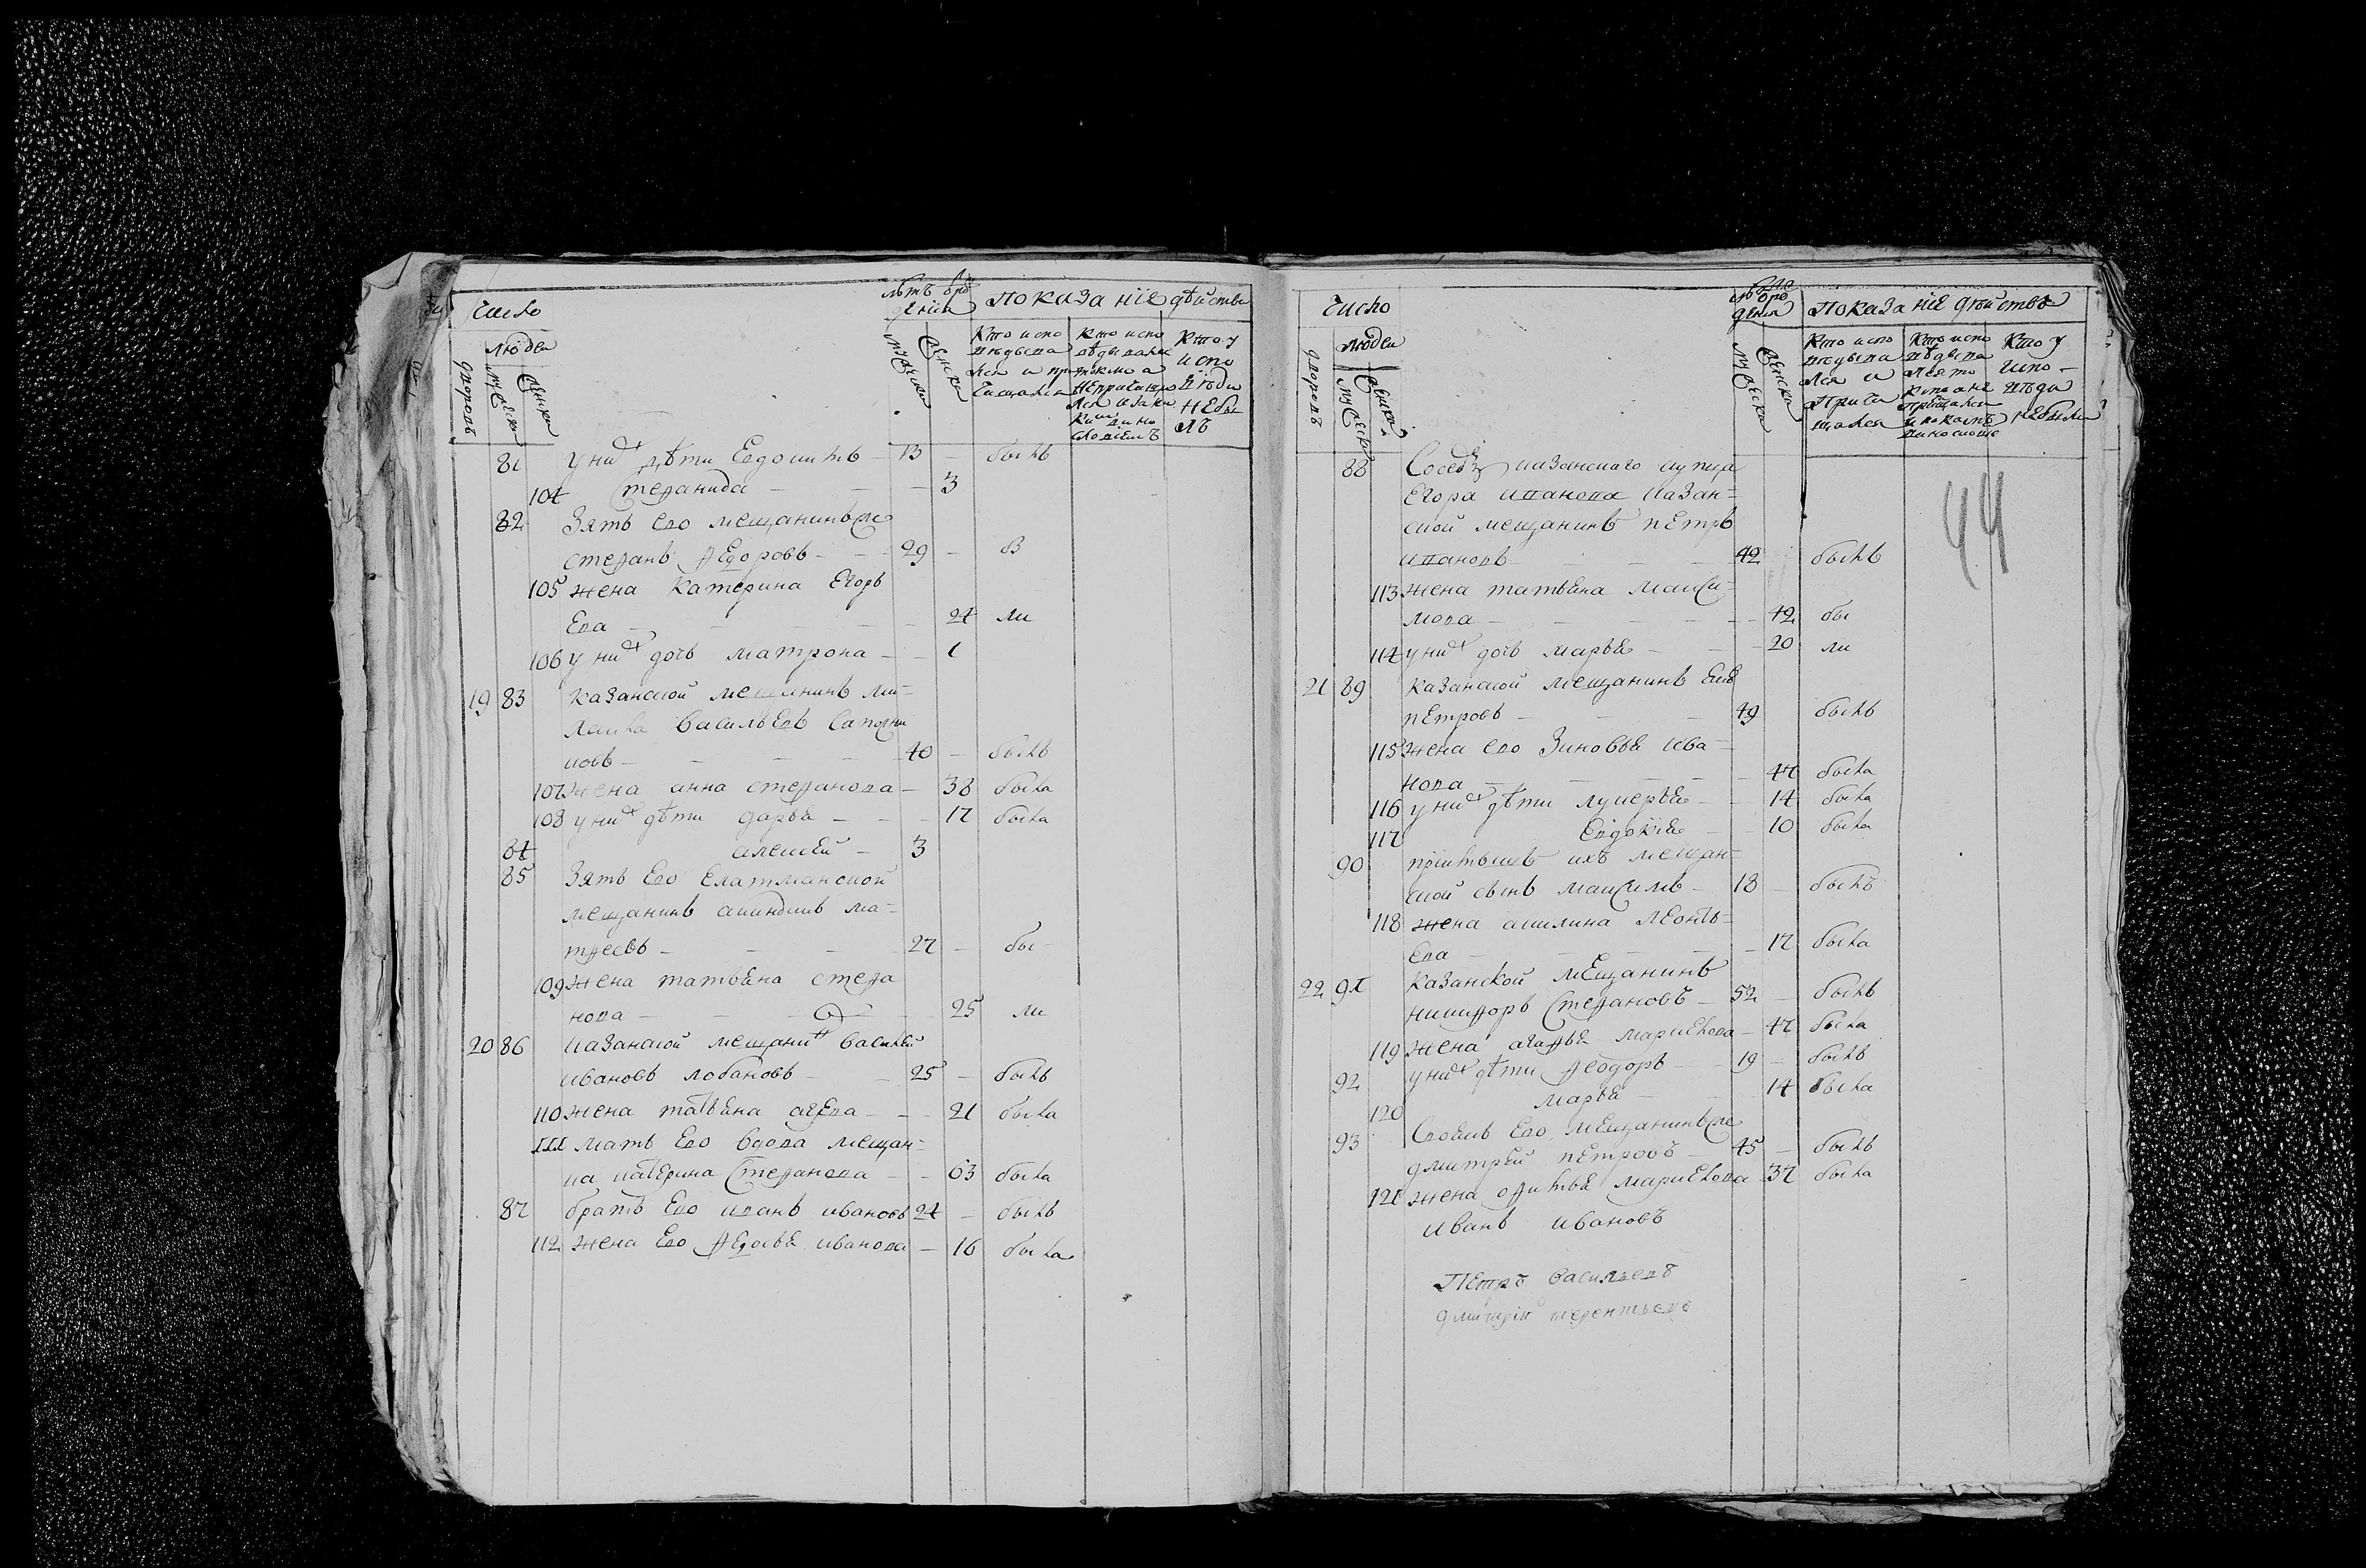 Число
лѣтъ от рож
денія
Показаніе дѣйства
людей
дворовъ
мужеска
женска
мужеска
женска
Кто испо
вѣдыва
лся и при
чащался
Кто испо
вѣдывался
токмо а
не прича
лся
Кто у
испо
вѣди
не бы
лъ
81 у них дѣти Евдокимъ 13 былъ
104 Стефанида 3
82 Зять ево мещанинъ же
стефанъ федоровъ 29 б
105 жена катерина Егорь
Ева 24 ли
106 у них дочь матрона 1
19 83 казанской мещанинъ ми=
хайла васильевъ сапожни
ковъ 40 былъ
107 жена анна стефанова 38 была
108 у них дѣти дарья 17 была
84 алексей 3
85 Зять Ево Елатманской
мещанинъ акиндинъ ма=
тфеевъ 27 бы
109 жена татьяна стефа
нова 25 ли
20 86 казанской мещанин василей
ивановъ лобановъ 25 былъ
110 жена татьяна 21 была
111 мать Ево вдова мещан=
ка катерина Стефанова 63 была
87 братъ Ево иванъ ивановъ 24 былъ
112 жена Ево федосья иванова 16 была
Число
лѣ от рож
денія
Показаніе дѣйствъ
людей
дворовъ
мужеска
женска
мужеска
женска
Кто испо
вѣдыва
лся и
прича
щался
Кто испо
вѣдыва
лся то
кмо а не
причащался
Кто у
испо-
вѣди
не были
44
88 Соседъ казанскаго купца
Егора иванова казан=
ской мещанинъ петръ
ивановъ 42 былъ
113 жена татьяна макси=
мова 42 бы
114 у них дочь марья 20 ли
21 89 казанской мещанинъ
петровъ 49 былъ
115 жена ево Зиновья ива=
нова 47 была
116 у них дѣти лукерья 14 была
117 Евдокия 10 была
90 приемышъ ихъ мещан=
ской сынъ максимъ 18 былъ
118 жена акилина леонть=
ева 17 была
22 91 казанской мещанинъ
никифоръ Стефановъ 52 былъ
119 жена агафья маркелова 47 была
92 у них дѣти феодоръ 19 былъ
120 марья 14 была
93 Своякъ Ево мещанинъ же
дмитрей петровъ 45 былъ
121 жена офимья маркелова 37 была
иванъ ивановъ
Петръ васильевъ
дмитрій терентьевъ